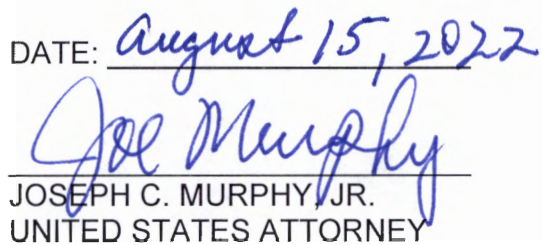 DATE: August 15, 2022
Joe Murphy
JOSEPH C. MURPHY, JR.
UNITED STATES ATTORNEY